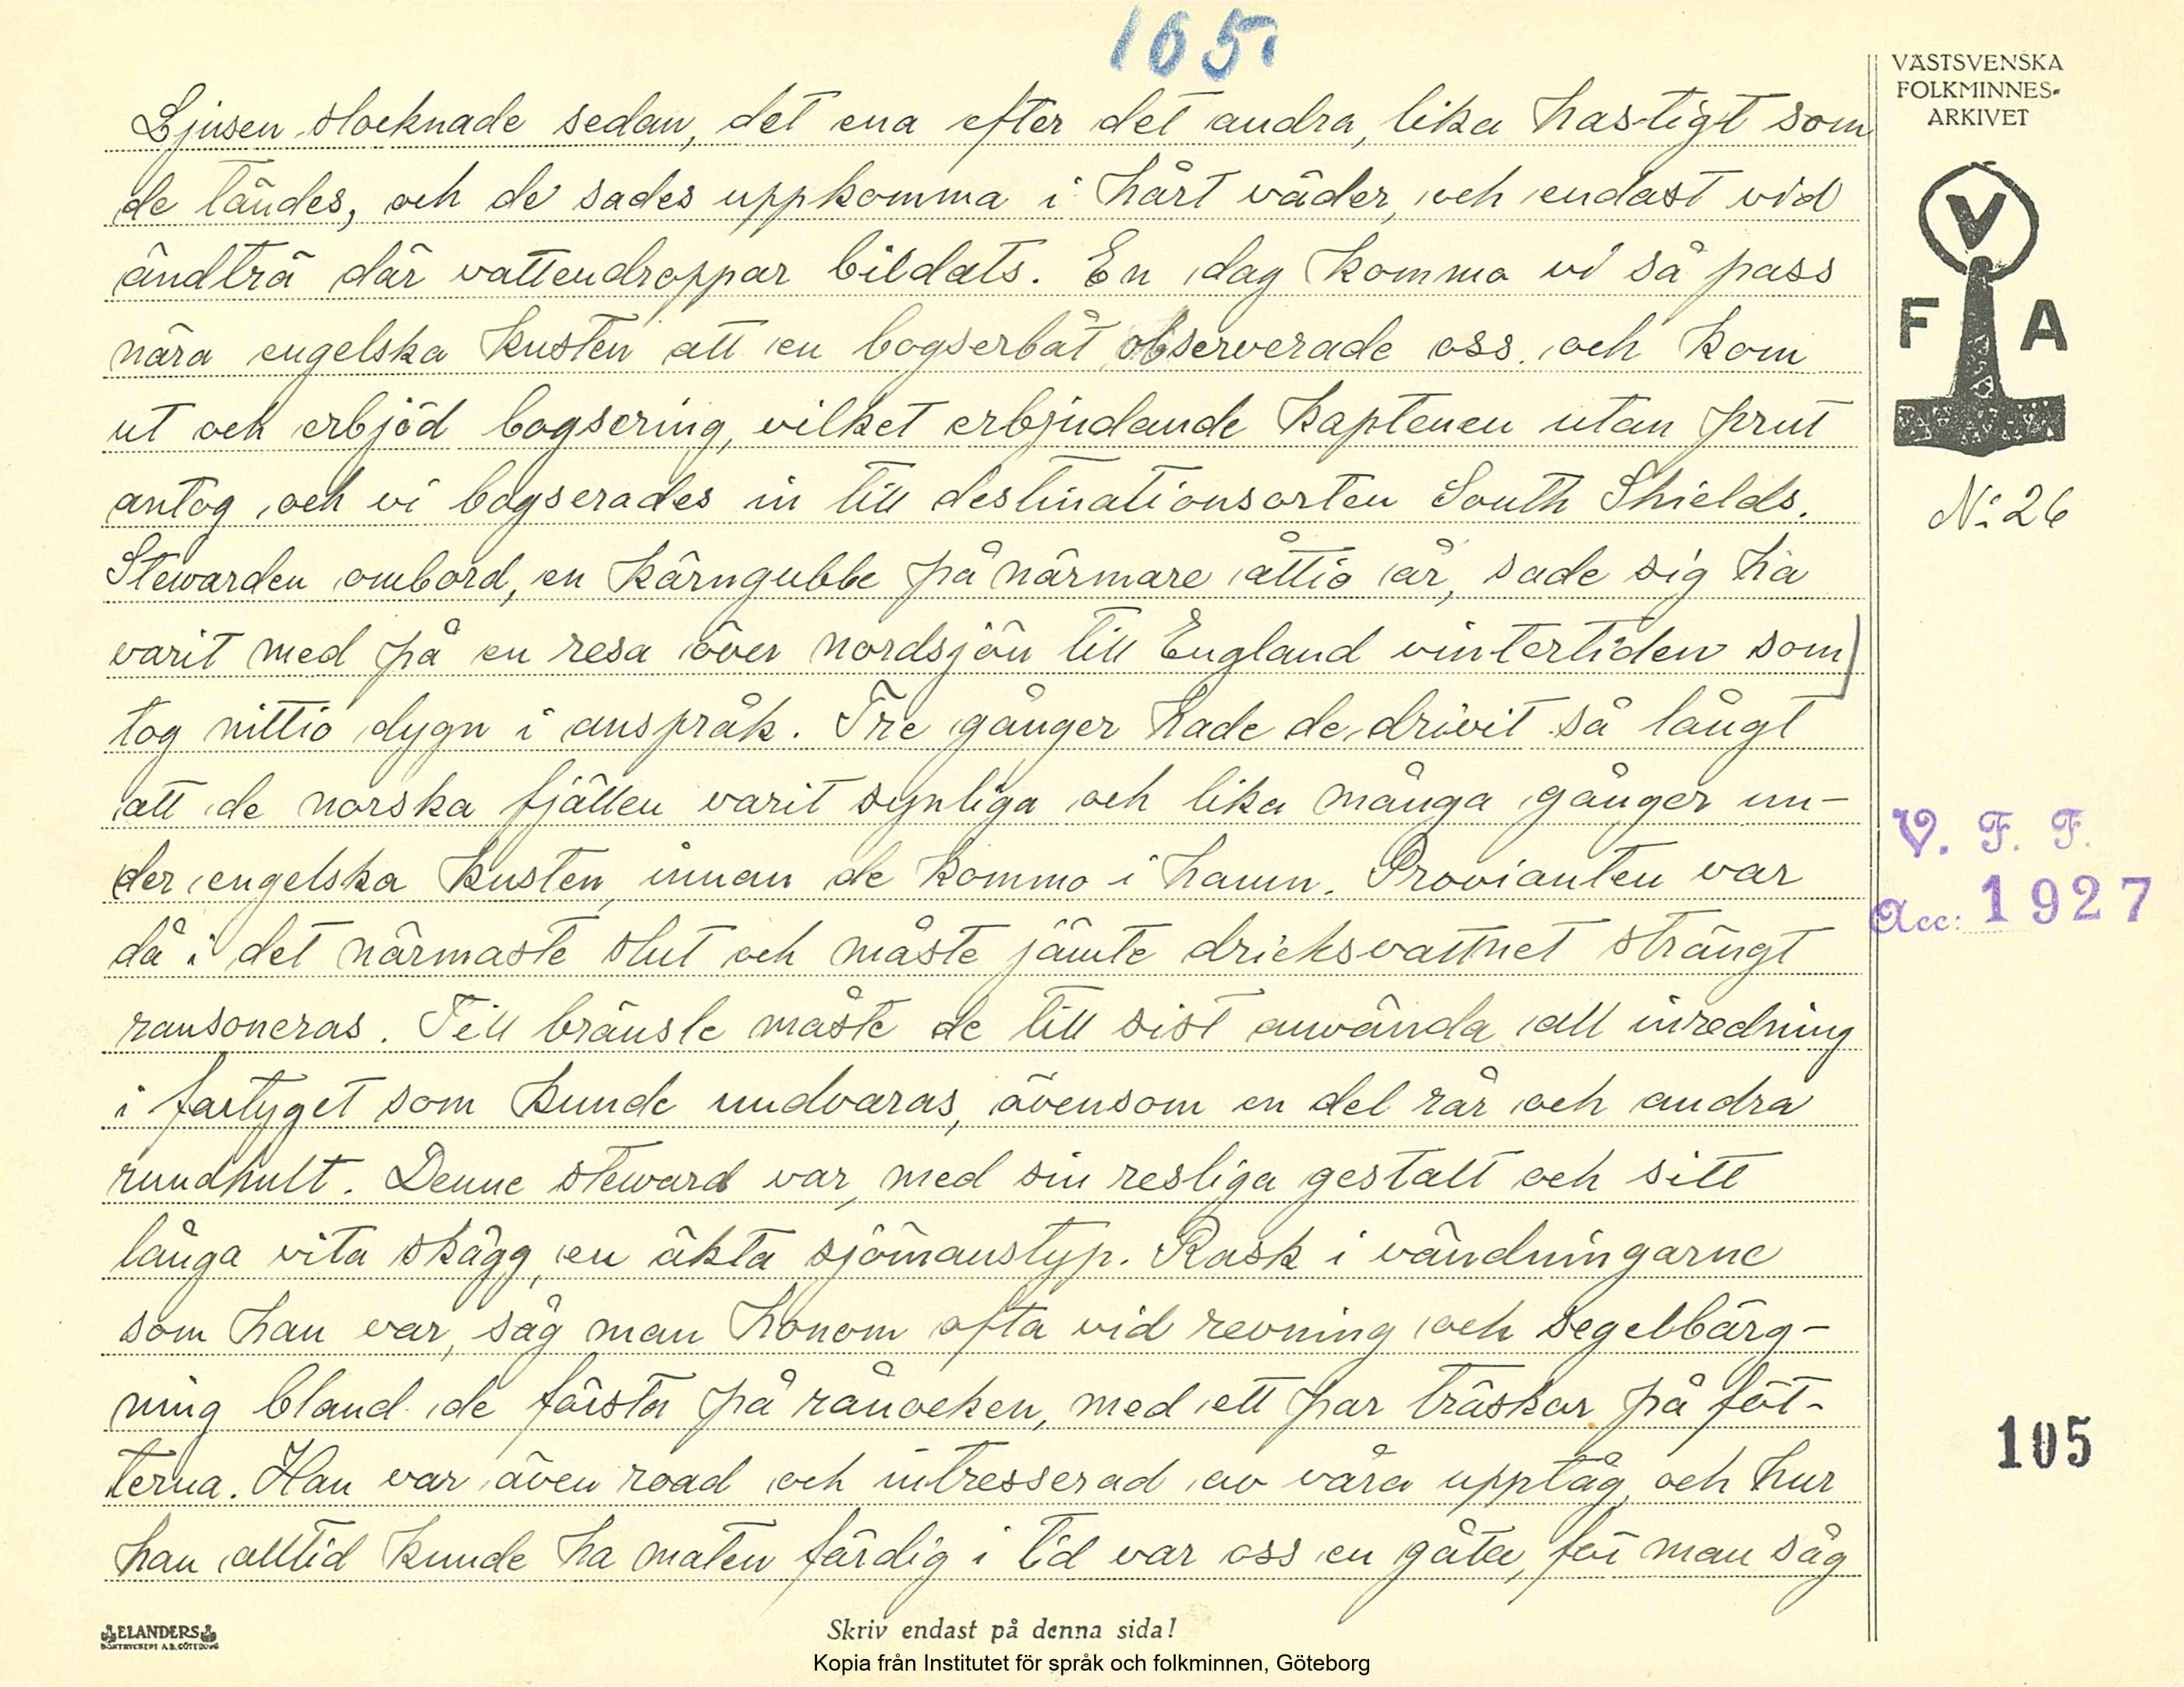 105.
VÄSTSVENSKA
FOLKMINNES-
ARKIVET
V
F A
N: 26
Ljusen slocknade sedan, det ena efter det andra, lika hastigt som
de tändes, och de sades uppkomma i hårt väder, och endast vid
ändträ där vattendroppar bildats. En dag kommo vi så pass
nära engelska kusten att en bogserbåt observerade oss. och kom
ut och erbjöd bogsering, vilket erbjudande kaptenen utan prut
antog, och vi bogserades in till destinationsorten South Shields.
Stewarden ombord, en kärngubbe på närmare åttio år, sade sig ha
varit med på en resa över nordsjön till England vintertiden som
tog nittio dygn i anspråk. Tre gånger hade de drivit så långt
att de norska fjällen varit synliga och lika många gånger un-
der engelska kusten, innan de kommo i hamn. Provianten var
då i det närmaste slut och måste jämte dricksvattnet strängt
ransoneras. Till bränsle måste de till sist använda all inredning
i fartyget som kunde undvaras, ävensom en del rår och andra
rundhult. Denne steward var, med sin resliga gestalt och sitt
långa vita skägg, en äkta sjömanstyp. Rask i vändningarne
som han var, såg man honom ofta vid revning och segelbärg-
ning bland de första på rånocken, med ett par träskor på föt-
terna. Han var även road och intresserad av våra upptåg, och hur
han alltid kunde ha maten färdig i tid var oss en gåta, för man såg
V. F. F.
Acc: 1927
105
ELANDERS
BOKTRYCKERI A.B. GÖTEBORG
Skriv endast på denna sida!
Kopia från Institutet för språk och folkminnen, Göteborg